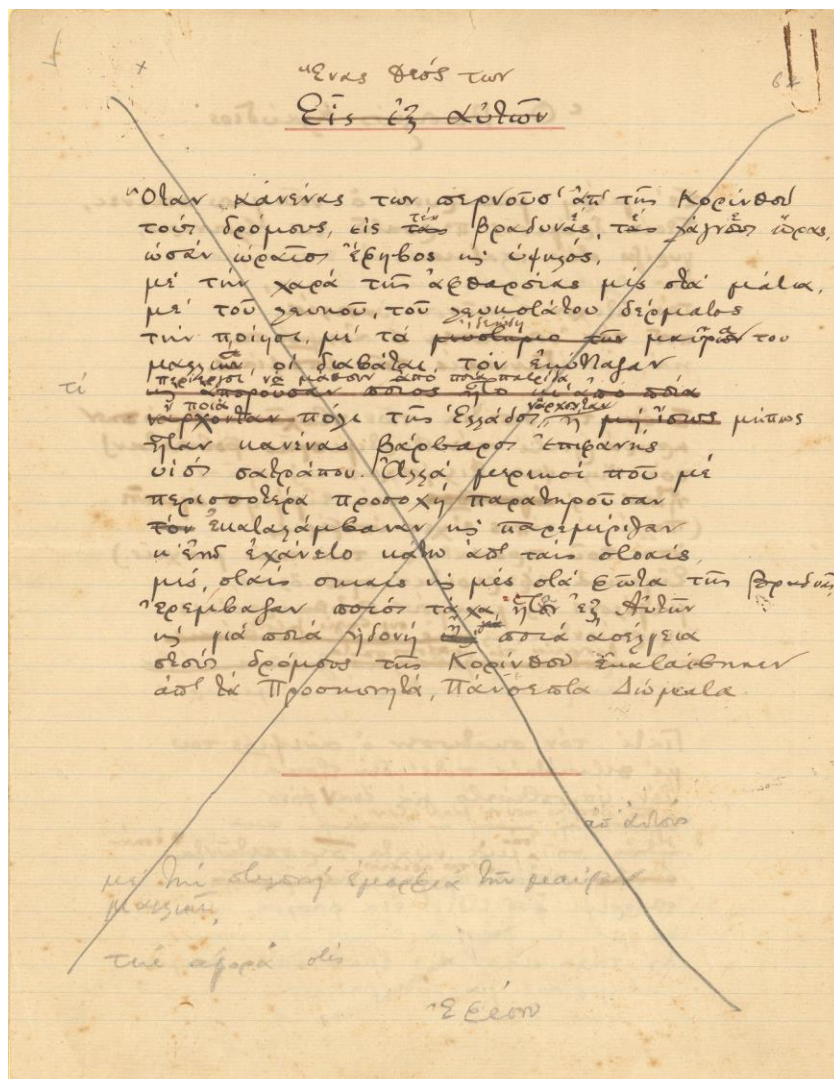 Ένας θεός των
Εἷς ἐξ αὐτῶν
Ὅταν κἀνένας των περνοῦσ' ἀπ' τῆς Κορίνθου
τοὺς δρόμους, εἰς τὲς βραδυνὲς, τὲς ὥρας,
ὡσὰν ὡραῖος ἔφηβος κ ὑψηλός,
μὲ τὴν χαρὰ τῆς ἀφθαρσίας μὲς στὰ μάτια,
μὲ τοῦ λευκοῦ, τοῦ λευκοτάτου δέρματος
τὴν ποίησι, μὲ τὰ μυστήριο τῶν του
μαλλιῶν, οἱ διαβάται τὸν ἐκύτταζαν
περίεργοι νὰ μάθουν ἀπὸ ποιὰ πατρίδα
κ ἀποροῦσαν ποῖος ἦτο κι ἀπὸ ποία
ἢ ποιὰ νἄρχονταν
νἄρχονταν πόλι τῆς Ἑλλάδος, ἢ μή, ἴσως μήπως
ἦταν κανένας βάρβαρος ἐπιφανὴς
υἱὸς σατράπου. Ἀλλὰ μερικοὶ ποὺ μὲ
περισσοτέρα προσοχὴ παρατηροῦσαν
τὸν ἐκαταλάμβαναν κ παρεμέριζαν
κ' ἐνῶ ἐχάνετο κάτω ἀπ' ταὶς στοαίς,
μὲς σταὶς σκιαὶς κ μὲς στὰ φῶτα τῆς βραδυᾶς
ἐρέμβαζαν ποιὸς τάχα ἦταν ἐξ Αὐτῶν
κ γιὰ ποιὰ ἡδονὴ ἢ γιὰ ποιὰ ἀσέλγεια
στοὺς δρόμους τῆς Κορίνθου ἐκαταίβηκεν
ἀπ' τὰ Προσκυνητά, Πάνσεπτα Δώματα
τί
ἀπ' αὐτοὺς
μὲ τὴν στιλπνὴ ἐμορφιὰ τῶν μαύρων
μαλλιῶν,
τὴν ἀγορὰ